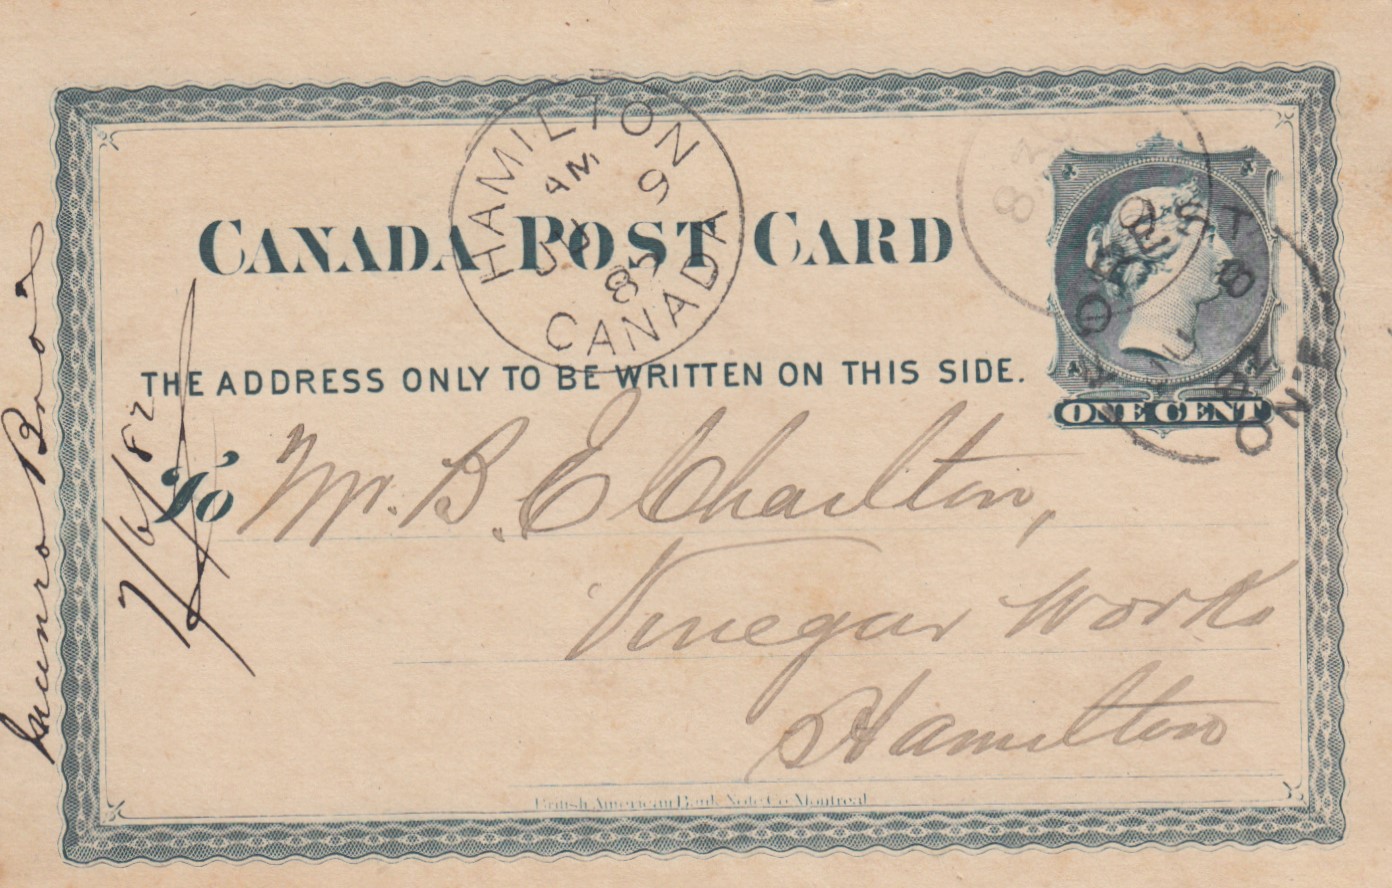 CANADA POST CARD
HAMILTON
AM
9
CANADA
THE ADDRESS ONLY TO BE WRITTEN ON THIS SIDE.
ONE CENT
To Mr. B. E Charlton,
Vinegar Works
Hamilton
British American Bank Note Co. Montreal
Munro Bros
7/6/82